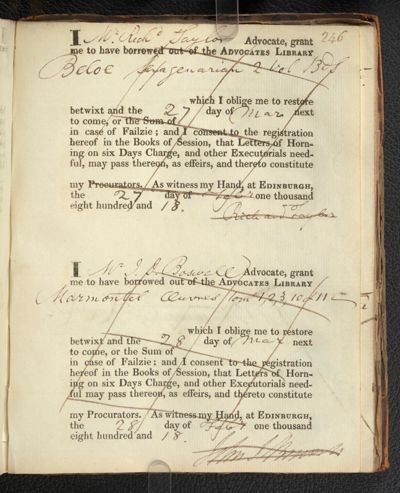 246
I Mr Richd Taylor Advocate, grant
me to have borrowed out of the ADVOCATES LIBRARY
Beloe Sexagenarian 2 Vol Bds
which I oblige me to restore
betwixt and the 27 day of Mar next
to come, or the Sum of
in case of Failzie; and I consent to the registration
hereof in the Books of Session, that Letters of Horn-
ing on six Days Charge, and other Executorials need-
ful, may pass thereon, as effeirs, and thereto constitute
my Procurators. As witness my Hand, at EDINBURGH,
the 27 day of one thousand
eight hundred and 18.
Richard Taylor
I Mr J. Boswell Advocate, grant
me to have borrowed out of the ADVOCATES LIBRARY
Marmontel Œuvres Tom 1,2,3,10 & 11
which I oblige me to restore
betwixt and the 28 day of Mar next
to come, or the Sum of
in case of Failzie; and I consent to the registration
hereof in the Books of Session, that Letters of Horn-
ing on six Days Charge, and other Executorials need-
ful may pass thereon, as effeirs, and thereto constitute
my Procurators. As witness my Hand, at EDINBURGH,
the 28 day of one thousand
eight hundred and 18.